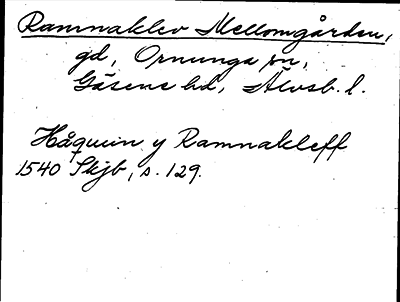 Ramnaklev Mellomgården,
gd, Ornunga sn,
Gäsene hd, Älvsb. l.
Håquin y Ramnakleff
1540 Skjb, s. 129.